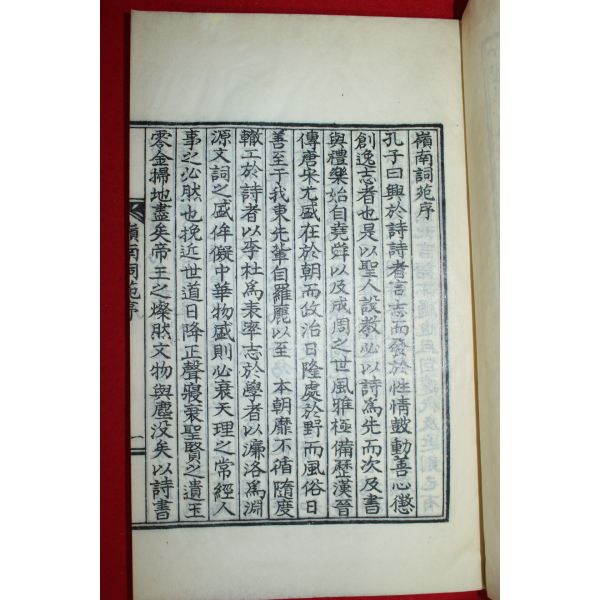 嶺南詞苑序
孔子曰興於詩詩者言志而發於性情鼓動善心懲
創逸志者也是以聖人設敎必以詩爲先而次及書
與禮樂始自堯舜以及成周之世風雅極備歷漢晉
傳唐宋尤盛在於朝而政治日隆處於野而風俗日
善至于我東先輩自羅麗以至 本朝靡不循隨度
轍工於詩者以李杜爲表率志於學者以濂洛爲淵
源文詞之盛侔儗中華物盛則必衰天理之常經人
事之必然也挽近世道日降正聲寢衰聖賢之遺玉
零金掃地盡矣帝王之燦然文物與塵沒矣以詩書
嶺南詞苑序
一